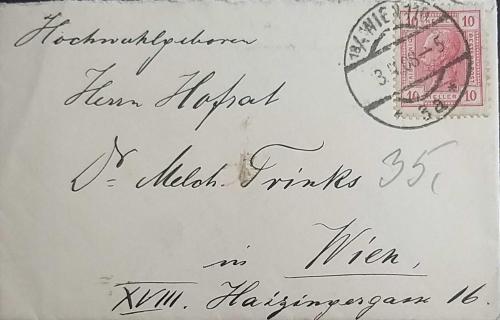 Hochwohlgeboren
Herrn Hofrat
Dr Melch. Trinks
35,
in Wien,
XVIII. Haizingergasse 16.
18/1 WIEN 110
3. 08-5
* 5a *
10 10
HELLER
10 10